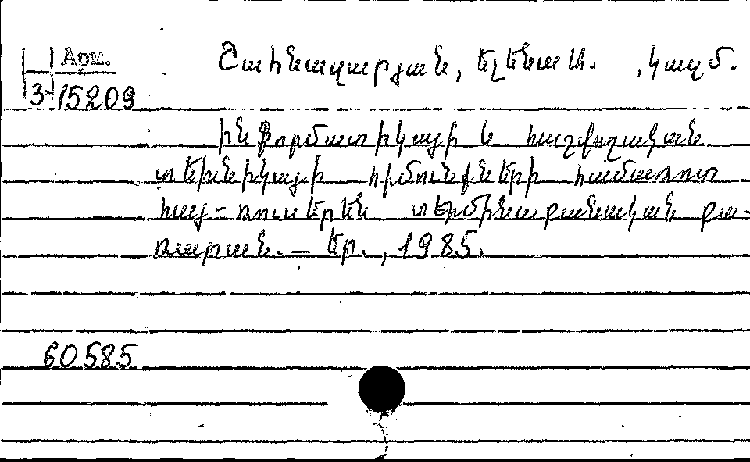 Арм.
Շահնազարյան, Ելենա Ա. , կազմ.
3-15209
Ինֆորմատիկայի և հաշվողական
տեխնիկայի հիմունքների համառոտ
հայ-ռուսերեն տերմինաբանական բա-
ռարան. — Եր., 1985.
60585